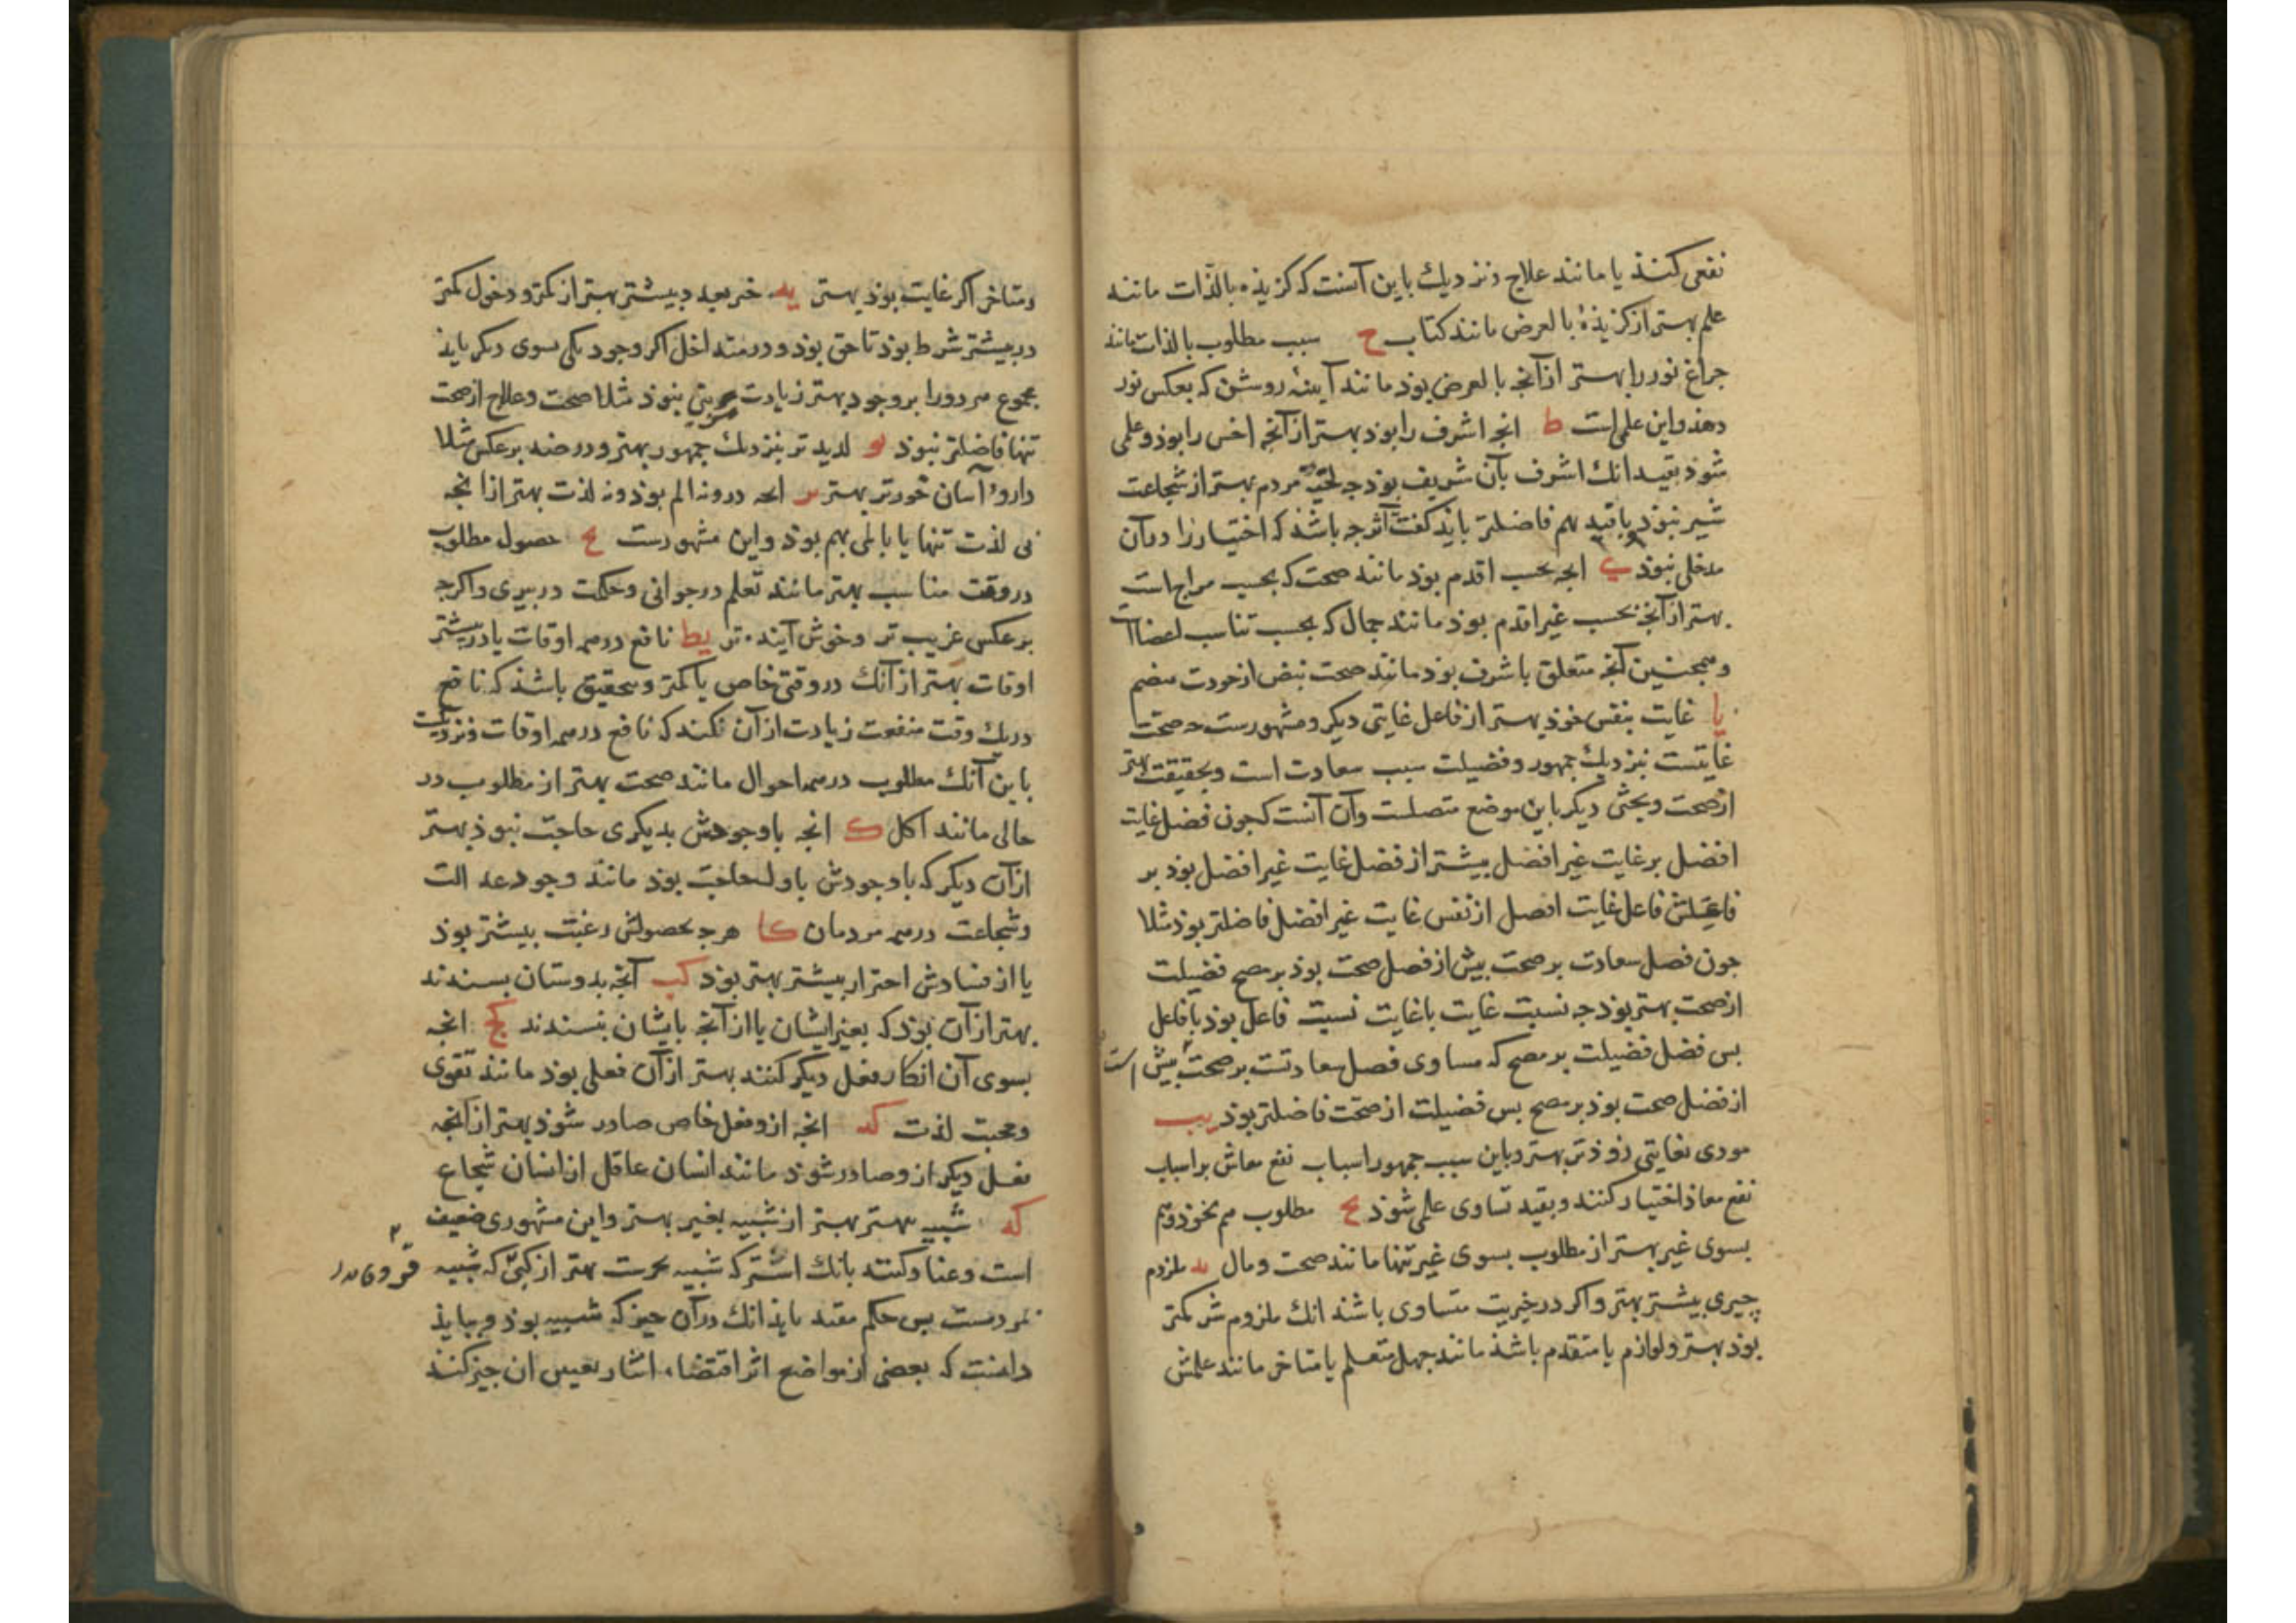 نفعی کنند یا مانند علاج ونزدیك باین آنست که کزیذه بالذات مانند
علم بهتر از کزیذهٔ بالعرض مانند کتاب ح سبب مطلوب بالذات مانند
جراغ نور را بهتر از آنجه بالعرض بوذ مانند آینهٔ روشن که بعکس نور
دهذ واین علمی است ط انجه اشرف را بوذ بهتر از آنجه اخس را بوذ وعلمی
شوذ بقید انك اشرف بآن شریف بوذ جه مردم بهتر از شجاعت
شیر نبوذ باقید هم فاضلتر بایذ کفت اثر جه باشذ که اختیار را درآن
مدخلی نبوذ ی انجه بحسب اقدم بوذ مانند صحت که بحسب مزاج است
بهتر از آنجه بحسب غیر اقدم بوذ مانند جمال که بحسب تناسب اعضا است
وهمجنین آنجه متعلق باشرف بوذ مانند صحت نبض از جودت هضم
یا غایت بنفس خوذ بهتر از فاعل غایتی دیکر ومشهورست جه صحت
غایتست بنزدیك جمهور وفضیلت سبب سعادت است وبحقیقت بهتر
از صحت وبحثی دیکر باین موضع متصلست وآن آنست که جون فضل غایت
افضل بر غایت غیر افضل بیشتر از فضل غایت غیر افضل بوذ بر
فاعلش فاعل غایت افضل از نفس غایت غیر افضل فاضلتر بوذ مثلا
جون فضل سعادت بر صحت بیش از فضل صحت بوذ بر مصح فضیلت
از صحت بهتر بوذ جه نسبت غایت با غایت نسبت فاعل بوذ با فاعل
بس فضل فضیلت بر مصح که مساوی فضل سعادتست بر صحت بیش است
از فضل صحت بوذ بر مصح بس فضیلت از صحت فاضلتر بوذ یب
مودی بغایتی زوذتر بهتر وباین سبب جمهور اسباب نفع معاش بر اسباب
نفع معاذ اختیار کنند وبقید تساوی علمی شوذ یج مطلوب هم بخوذ وهم
بسوی غیر بهتر از مطلوب بسوی غیر تنها مانند صحت ومال ید ملزوم
جیزی بیشتر بهتر واکر در خیریت متساوی باشند انك ملزوم شر کمتر
بوذ بهتر ولوازم یا متقدم باشذ مانند جهل متعلم یا متاخر مانند علمش
ومتاخر اکر غایت بوذ بهتر یه خیر بعد دبیشتر بهتر از کمتر ودخول کمتر
در بیشتر شرط بوذ تا حق بوذ ودر متداخل اکر وجود یکی بسوی دیکر بایذ
مجموع هر دو را بر وجود بهتر زیادت مزیتی نبوذ مثلا صحت وعلاج از صحت
تنها فاضلتر نبوذ یو لذیذتر بنزدیك جمهور بهتر ودر ضد بر عکس مثلا
دارؤ آسان خورتر بهتر یز انجه درو نه الم بوذ ونه لذت بهتر از انجه
بی لذت تنها یا با المی بهم بوذ واین مشهورست یح حصول مطلوب
در وقت مناسب بهتر مانند تعلم در جوانی وحکمت در پیری واکرجه
بر عکس غریب تر وخوش آینده تر یط نافع در همه اوقات یا در بیشتر
اوقات بهتر از آنك در وقتی خاص یا کمتر وبحقیق باشذ که نافع
در یك وقت منفعت زیادت از آن نکند که نافع در همه اوقات ونزدیکست
باین آنك مطلوب در همه احوال مانند صحت بهتر از مطلوب در
حالی مانند اکل ك انجه با وجودش بدیکری حاجت نبوذ بهتر
از آن دیکر که با وجودش باول حاجت بوذ مانند وجود عدالت
وشجاعت در همه مردمان کا هرجه بحصولش رغبت بیشتر بوذ
یا از فسادش احتراز بیشتر بهتر بوذ کب آنجه بدوستان بسندند
بهتر از آن بوذ که بغیر ایشان یا از آنجه بایشان نبسندند کج انجه
بسوی آن انکار فعل دیکر کنند بهتر از آن فعلی بوذ مانند تقوی
ومحبت لذت کد انجه ازو فعل خاص صادر شوذ بهتر از آنجه
فعل دیکر ازو صادر شوذ مانند انسان عاقل از انسان شجاع
که شبیه بهتر بهتر از شبیه بغیر بهتر واین مشهوری ضعیف
است وعناد کنند بانك اسب که شبیه بخرست بهتر از کبی که شبیه
بمردمست بس حکم مقید بایذ انك درآن جیز که شبیه بوذ وببایذ
دانست که بعضی از مواضع اثر اقتضاء ایثار بعینین ان جیز کند